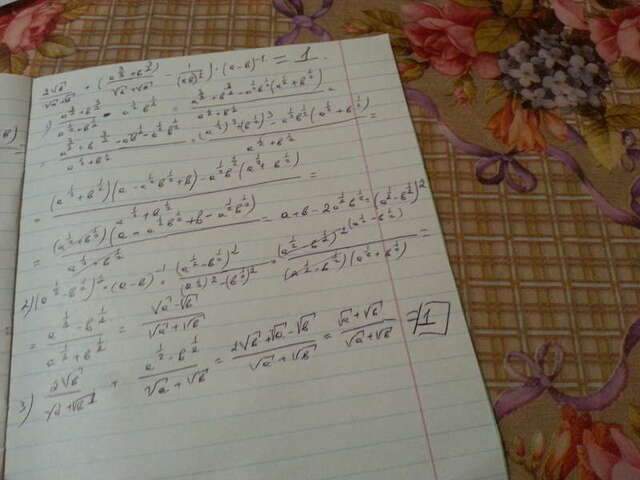 2√b / (√a + √b) + ((a^(3/2) + b^(3/2)) / (√a + √b) - 1 / (ab)^(1/2)) · (a - b)^(-1) = 1
1) (a^(3/2) + b^(3/2)) / (a^(1/2) + b^(1/2)) - a^(1/2) b^(1/2) = (a^(3/2) + b^(3/2) - a^(1/2) b^(1/2) (a^(1/2) + b^(1/2))) / (a^(1/2) + b^(1/2)) =
= ((a^(1/2))^3 + (b^(1/2))^3 - a^(1/2) b^(1/2) (a^(1/2) + b^(1/2))) / (a^(1/2) + b^(1/2)) =
= (a^(1/2) + b^(1/2)) (a - a^(1/2) b^(1/2) + b) - a^(1/2) b^(1/2) (a^(1/2) + b^(1/2)) / (a^(1/2) + b^(1/2)) =
= (a^(1/2) + b^(1/2)) (a - a^(1/2) b^(1/2) + b - a^(1/2) b^(1/2)) / (a^(1/2) + b^(1/2)) = a + b - 2a^(1/2) b^(1/2) = (a^(1/2) - b^(1/2))^2
2) (a^(1/2) - b^(1/2))^2 · (a - b)^(-1) = (a^(1/2) - b^(1/2))^2 / ((a^(1/2))^2 - (b^(1/2))^2) = (a^(1/2) - b^(1/2))^2 / ((a^(1/2) - b^(1/2)) (a^(1/2) + b^(1/2))) =
= (a^(1/2) - b^(1/2)) / (a^(1/2) + b^(1/2)) = (√a - √b) / (√a + √b)
3) 2√b / (√a + √b) + (a^(1/2) - b^(1/2)) / (√a + √b) = (2√b + √a - √b) / (√a + √b) = (√a + √b) / (√a + √b) = 1